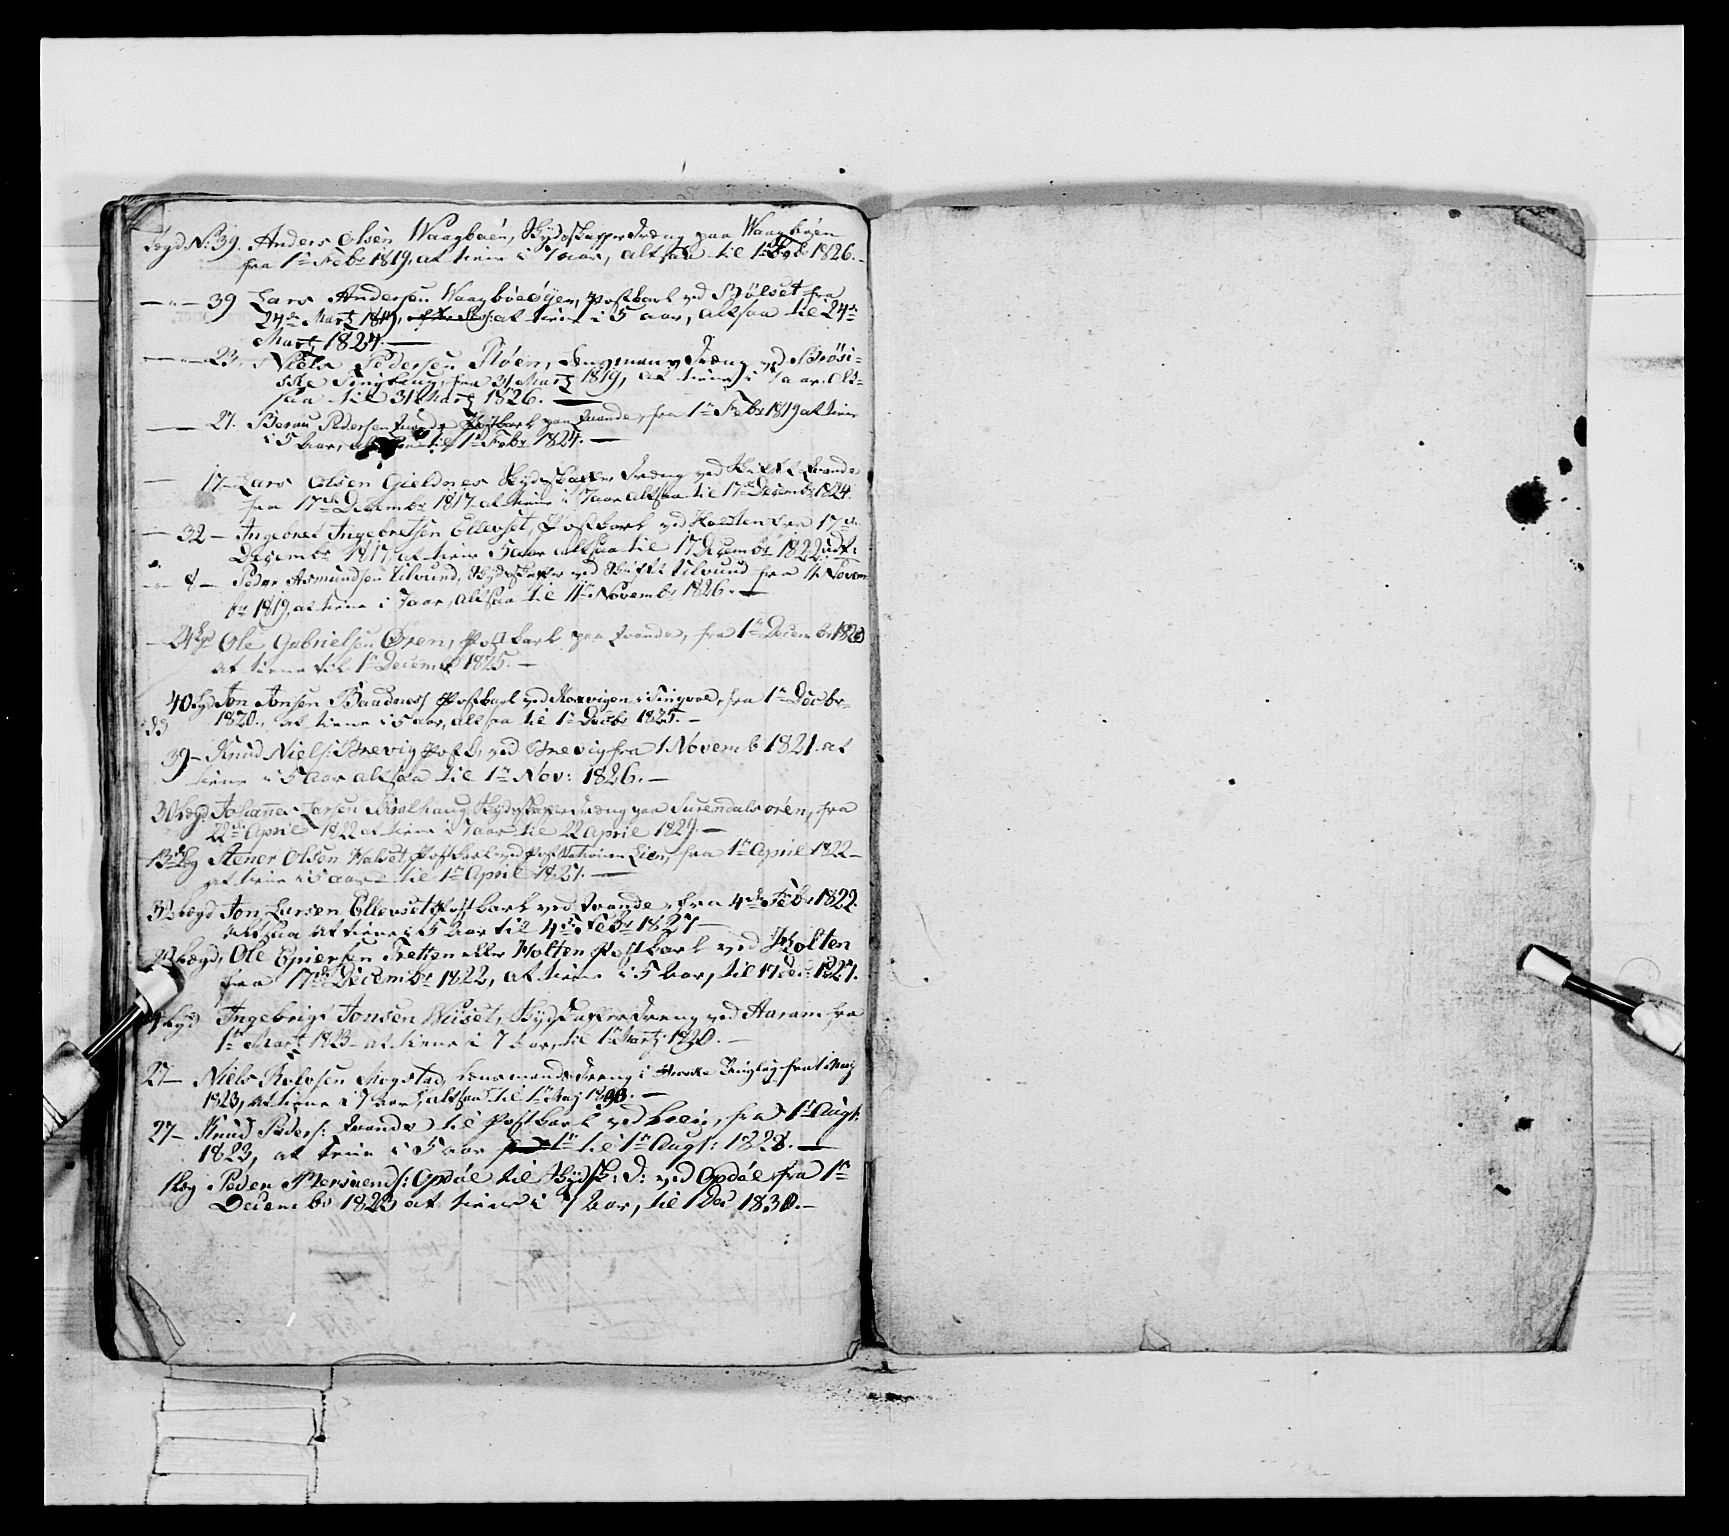 Lægd N: 39. Anders Olsen Waagbøen, Skydsskafferdræng paa Waagbøen
fra 1ste Febr 1819, at tiene i 7 aar, altsaa til 1ste Febr 1826.
— " — 39 Lars Andersen Waagbøeøyen, Postkarl ved Bølset fra
24de Martz 1819, at tiene i 5 aar, altsaa til 24de
Martz 1824. —
— " — 23. Niels Pedersen Møen, Lensmans dræng ved
fra 31 Martz 1819, at tiene i 7 aar, alt-
saa til 31 Martz 1826. —
— 21. Pedersen Postkarl paa Qvande, fra 1ste Febr 1819 at tiene
i 5 aar, til 1ste Febr 1824. —
— 17 — Lars Olsen Gieldnes Skydsskaffer dræng ved Skiftet Qvande
fra 17de Decembr 1817 at tiene i 7 aar altsaa til 17de Decembr 1824.
— 32 — Ingebret Ingebretsen Ellevset, Postkarl ved Holten fra 17de
Decembr 1817, at tiene 5 aar altsaa til 17 Decembr 1822
— " — 4 — Peder Asmundsen Tilvund, Skydsskaffer ved Skiftet Tilvund fra 11 Novem-
br 1819, at tiene i 7 aar, altsaa til 11te Novembr 1826. —
— 24 Lægd Ole Gabrielsen Øren, Postkarl paa Qvande, fra 1ste Decembr 1820
at tiene til 1ste Decembr 1825. —
40 Lægd Jon Jonsen Baadnes Postkarl ved Korsvigen i Tingvold, fra 1ste Decbr
1820, at tiene i 5 aar, altsaa til 1ste Decbr 1825. —
39 — Knud Niels: Brevig Postk. ved Brevig fra 1 Novemb 1821. at
tiene i 5 Aar altsaa til 1ste Nov: 1826. —
Lægd Johannes Larsen Skydsskafferdræng paa Surendalsøren, fra
22de April 1822 at tiene i 7 aar til 22 April 1829. —
13de Læg Stener Olsen Halset, Postkarl ved Poststationen Lien, fra 1ste April 1822 —
at tiene i 5 aar til 1ste April 1827. —
Lægd Jon Larsen Ellevset Postkarl ved Qvande, fra 4de Febr 1822
altsaa at tiene i 5 aar til 4de Febr 1827 —
Lægd, Ole Tretten eller Holten Postkarl ved Holten
fra 17de Decembr 1822, at tiene i 5 aar, til 17 Dec: 1827.
Lægd Ingebrigt Jonsen Skydsskafferdreng ved Aaram fra
1ste Martz 1823 at tiene i 7 aar, til 1ste Martz 1830. —
27 — Niels Rolvsen Mogstad, Lensmandsdreng i fra 1 Maj
1823, at tiene i 7 aar, altsaa til 1ste Maj 1830. —
27 — Knud Peders: Qvande til Postkarl ved Lien, fra 1ste Augt:
1823, at tiene i 5 aar til 1ste Augt: 1828. —
1 Læg Peder Opdøl til Skydsk: D: ved Opdøl fra 1ste
Decembr 1823 at tiene i 7 aar, til 1 Dec 1830. —